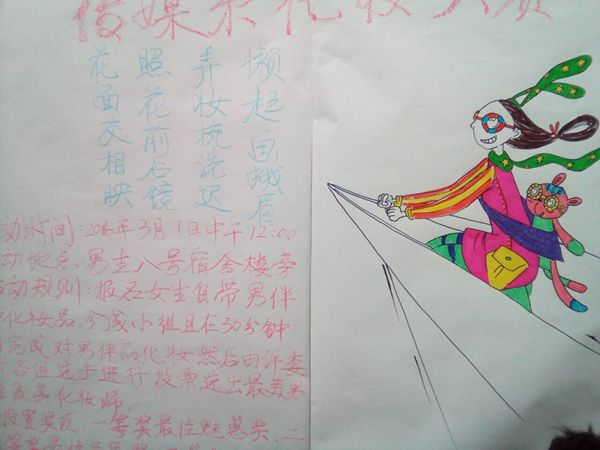 传媒系化妆大赛
懒起画蛾眉
弄妆梳洗迟
照花前后镜
花面交相映
动时间:2016年3月1日中午12:00
动地点:男生八号宿舍楼旁
动规则:报名女生自带男伴
化妆品,分成小组且在30分钟
完成对男伴的化妆然后由评委
选手进行投票选出最美男
化妆师。
设置奖项:一等奖最佳魅惑奖、二
等奖最佳